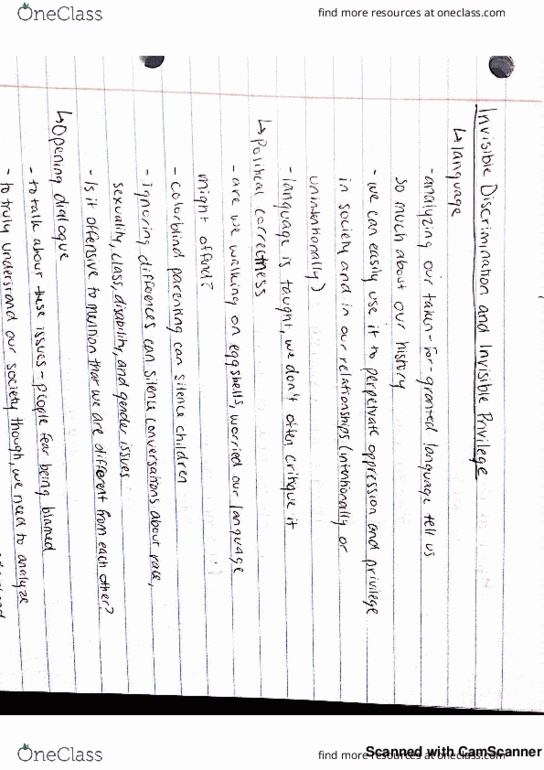 OneClass
find more resources at oneclass.com
Invisible Discrimination and Invisible Privilege
↳ language
- analyzing our taken-for-granted language tell us
so much about our history
- we can easily use it to perpetuate oppression and privilege
in society and in our relationships (intentionally or
unintentionally)
- language is taught, we don't often critique it
↳ Political correctness
- are we walking on eggshells, worried our language
might offend?
- colorblind parenting can silence children
- ignoring differences can silence conversations about race,
sexuality, class, disability, and gender issues
- Is it offensive to mention that we are different from each other?
↳ Opening dialogue
- to talk about these issues - people fear being blamed
- to truly understand our society though, we need to analyze
OneClass
find more resources at oneclass.com
Scanned with CamScanner